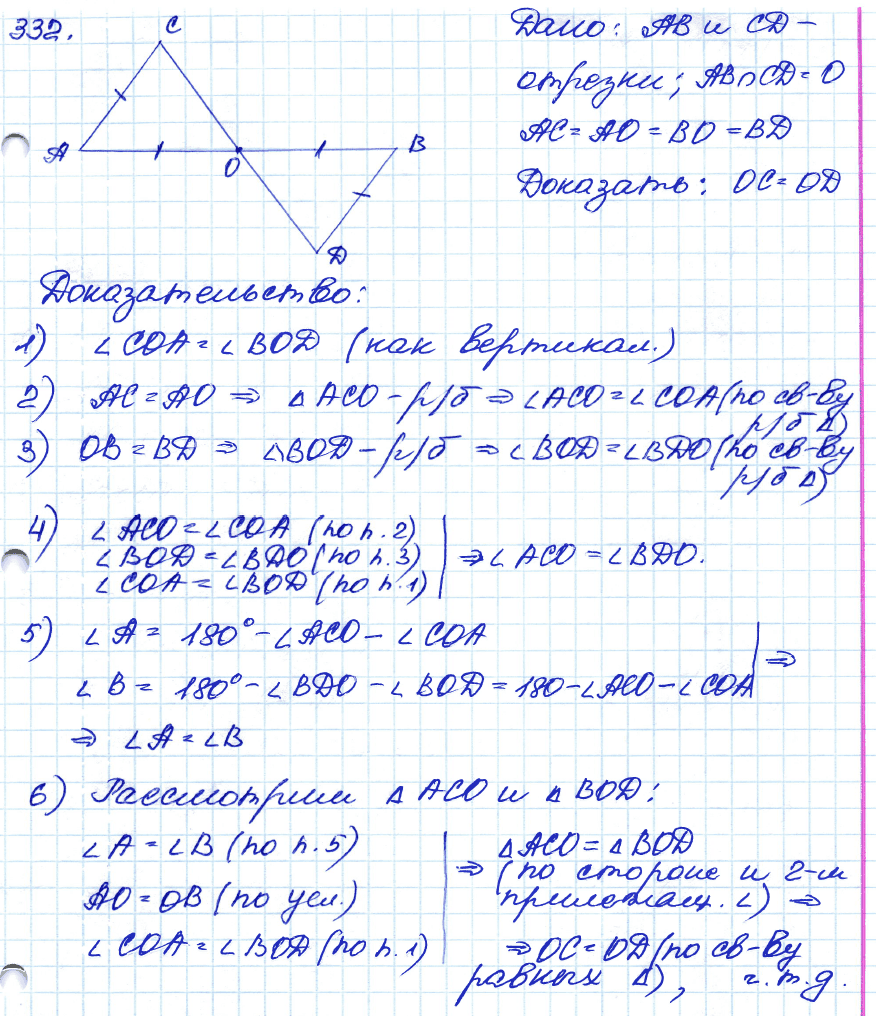 332.
C
A
O
B
D
Дано: AB и CD –
отрезки; AB∩CD=O
AC=AO=BO=BD
Доказать: OC=OD
Доказательство:
1) ∠COA=∠BOD (как вертикал.)
2) AC=AO ⇒ △ACO – р/б ⇒ ∠ACO=∠COA (по св-ву
р/б △)
3) OB=BD ⇒ △BOD – р/б ⇒ ∠BOD=∠BDO (по св-ву
р/б △)
4) ∠ACO=∠COA (по п.2)
∠BOD=∠BDO (по п.3) ⇒ ∠ACO=∠BDO.
∠COA=∠BOD (по п.1)
5) ∠A = 180°-∠ACO-∠COA
∠B = 180°-∠BDO-∠BOD=180-∠ACO-∠COA ⇒
⇒ ∠A=∠B
6) Рассмотрим △ACO и △BOD:
∠A=∠B (по п.5)
AO=OB (по усл.)
∠COA=∠BOD (по п.1)
△ACO=△BOD
⇒ (по стороне и 2-м
прилежащ. ∠) ⇒
⇒ OC=OD (по св-ву
равных △), ч.т.д.